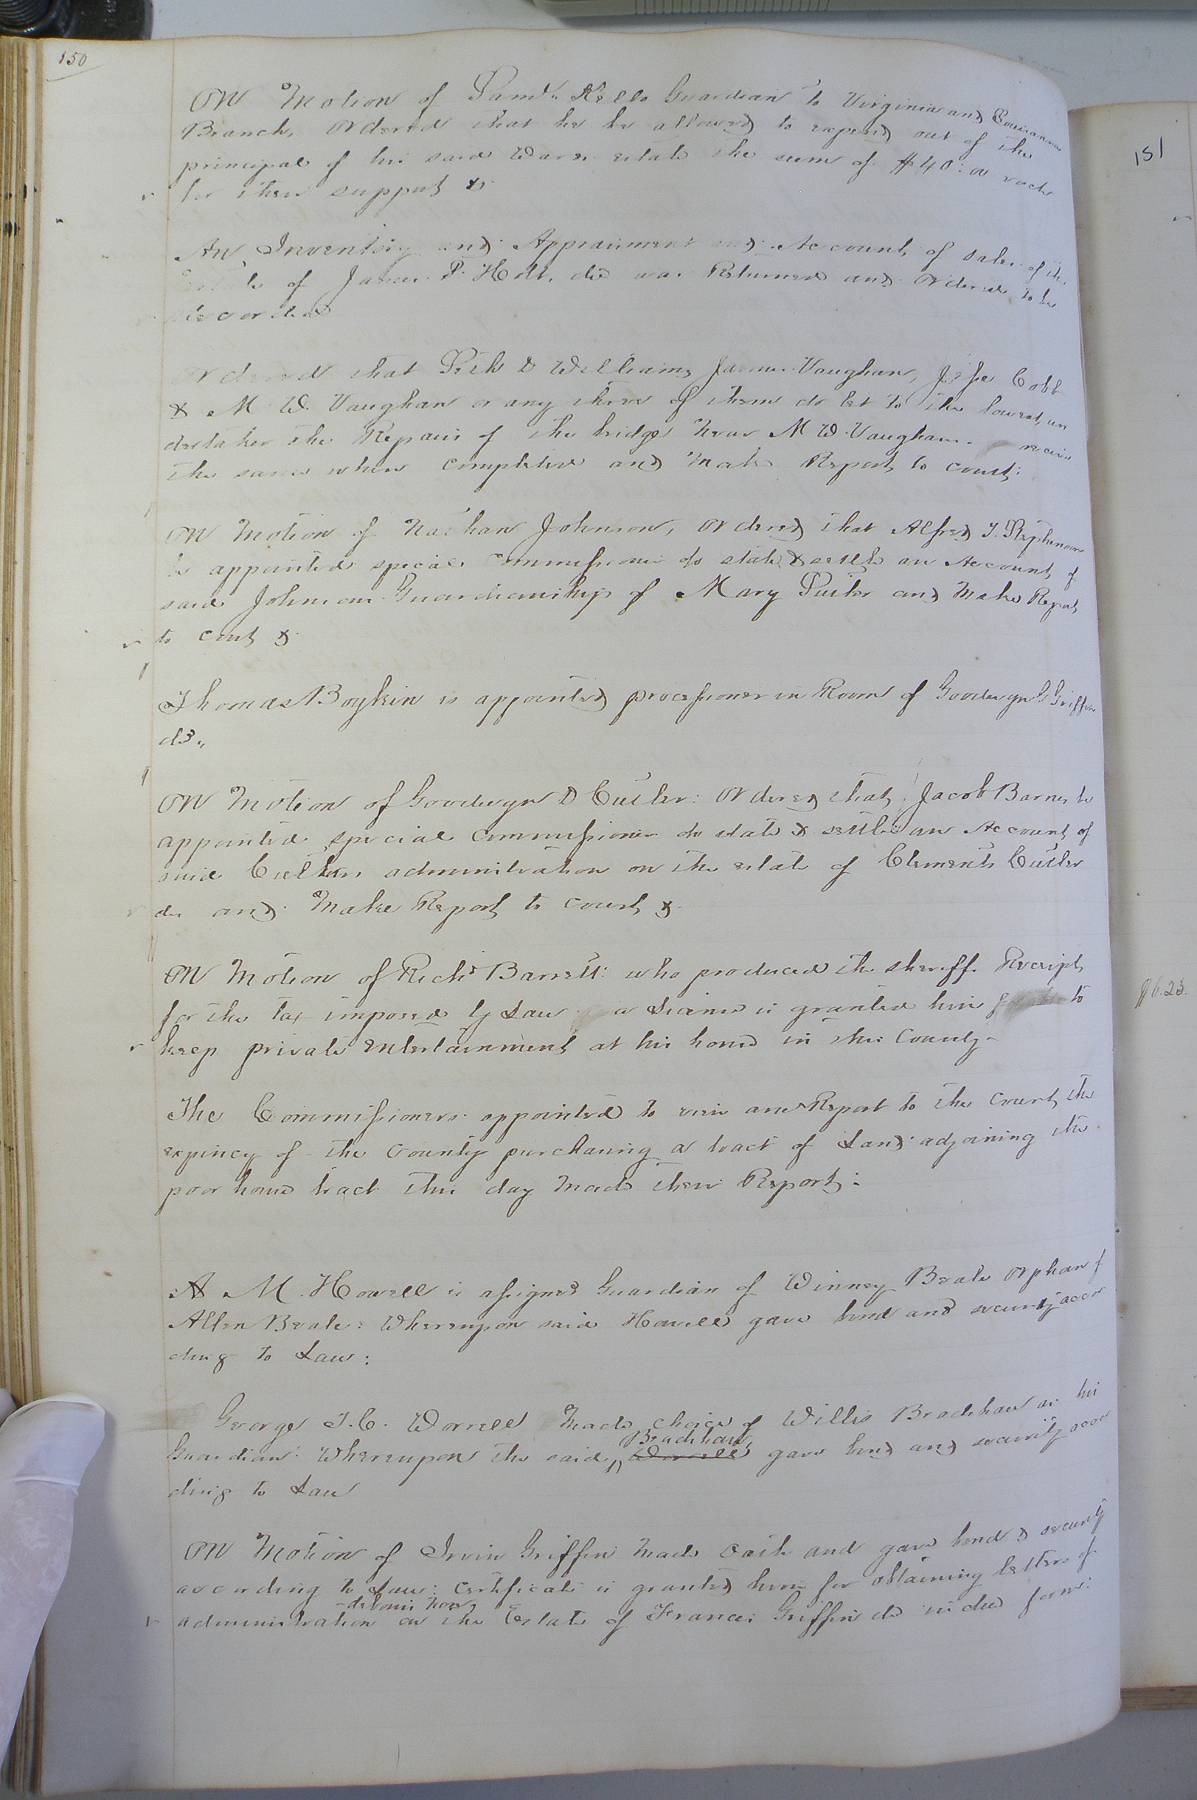 150
ON Motion of Saml. Kello Guardian to Virginia and Louisianna
Branch, Ordered that he be allowed to expend out of the
principal of his said Wards estate the sum of $40: a each
for their support &.
An Inventory and Appraisment and Account of sales of the
of James P. Holt, dec was Returned and Ordered to be
Recorded
Ordered that D Williams James Vaughan, Jesse Cobb
& M W. Vaughan or any three of them do let to the lowest un
dertaker the Repairs of the bridge Near M W. Vaughans. receive
the same when completed and Make Report to court:
ON Motion of Nathan Johnson, Ordered that Alfred J. Stephenson
be appointed special Commissioner to state & settle an Account of
said Johnsons Guardianship of Mary and Make Report
to court &
Thomas Boykin is appointed processioner in Room of Goodwyn G Griffin
dd.,
ON Motion of Goodwyn D Cutler: Ordered that Jacob Barnes be
appointed special Commissioner to state & settle an Account of
said Cutlers administration on the estate of Clements Cutler
de and Make Report to court &
ON Motion of Richd Barrett: who produced the sheriffs Receipt
for the tax imposed by Law a License is granted him to
keep private Entertainment at his house in this County-
The Commissioners appointed to view and Report to the Court, the
expincy of the County purchasing a tract of Land adjoining the
poor house tract this day Made their Report:
A M. Howell is assigned Guardian of Winney Beale Orphan of
Allen Beale: Whereupon said Howell gave bond and security accor
ding to Law:
George T. C. Worrell Made choice of Willis Bradshaw as his
Guardian: Whereupon the said Bradshaw Worrell gave bond and security accor
ding to Law
ON Motion of Irvin Griffin Made Oath and gave bond & security
according to Law: Certificate is granted him for obtaining letters of
administration debonis non on the Estate of Francis Griffin de in due form:
151
$6.23.